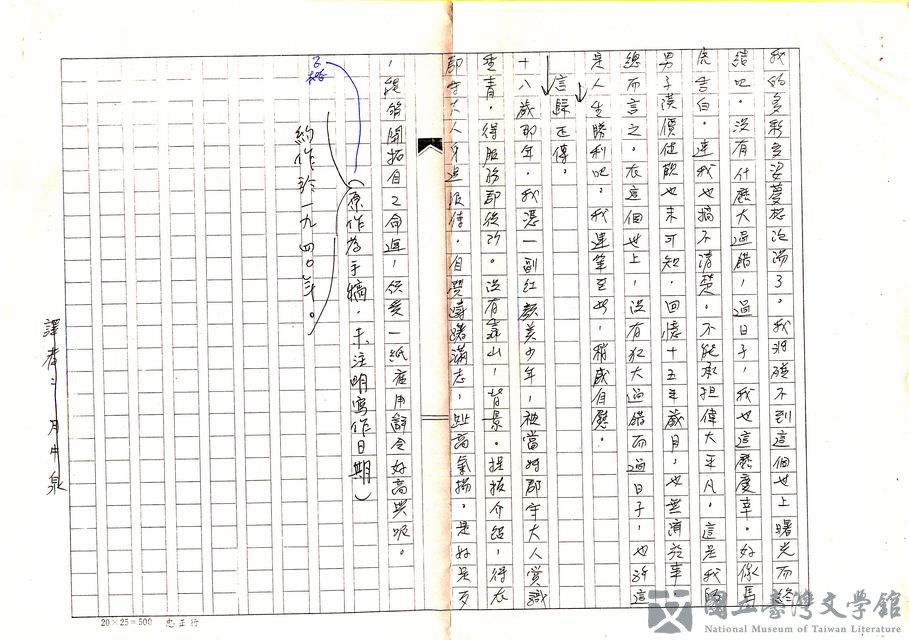 我的多彩多姿夢想泡湯了。我將碰不到這個世上曙光而終
結吧。沒有什麼大過錯，過日子，我也這麼慶幸。好像馬
虎告白。連我也搞不清楚。不能承担偉大平凡。這是我的
男子漢價值觀也未可知。回憶十五年歲月，也無濟於事
總而言之。在這個世上，沒有犯大過錯而過日子，也許這
是人生勝利吧。我運筆至此，稍感自慰。
言歸正傳。
十八歲那年。我憑一副紅顏美少年，被當時郡守大人賞識
青。得服務郡役所。沒有靠山，背景。提拔介紹，得衣
郡守大人身邊服侍。自覺躊躇滿志，趾高氣揚。是好是歹
，總算開拓自己命運，供養一紙應用辭令好高興呢。
（原作為手稿，未注明寫作日期）
約作於一九四〇年。
譯者：月中泉
20×25=500
國立臺灣文學館
National Museum of Taiwan Literature